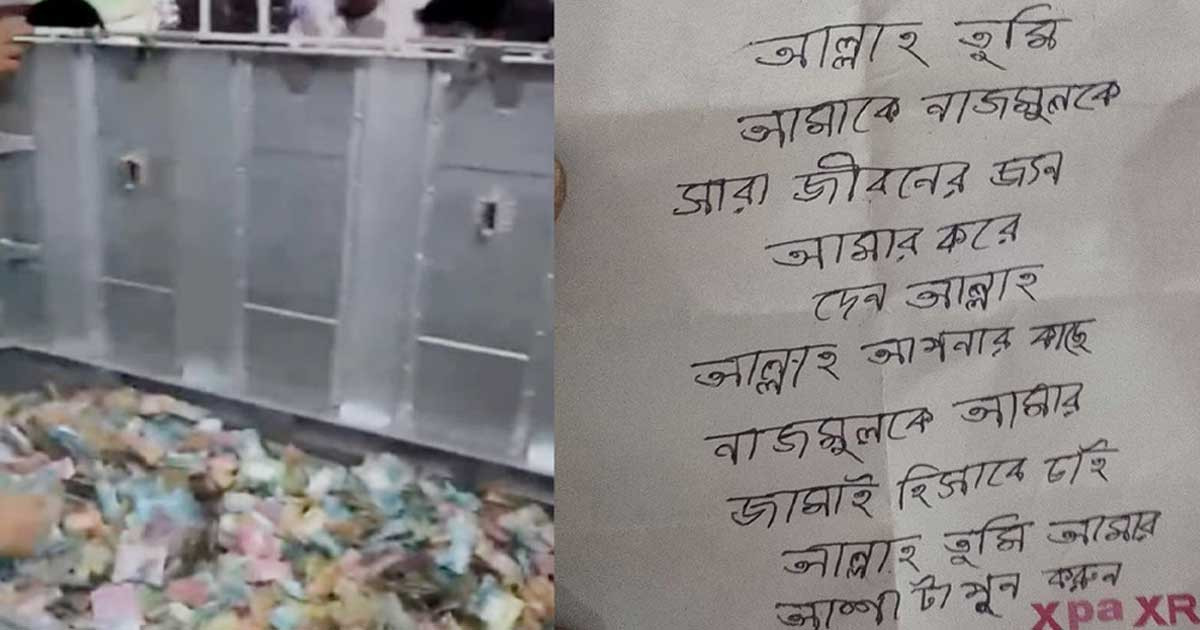 আল্লাহ তুমি
আমাকে নাজমুলকে
সারা জীবনের জন্য
আমার করে
দেন আল্লাহ
আল্লাহ আপনার কাছে
নাজমুলকে আমার
জামাই হিসাবে চাই
আল্লাহ তুমি আমার
আশা টা পুন করুন
XpaXR